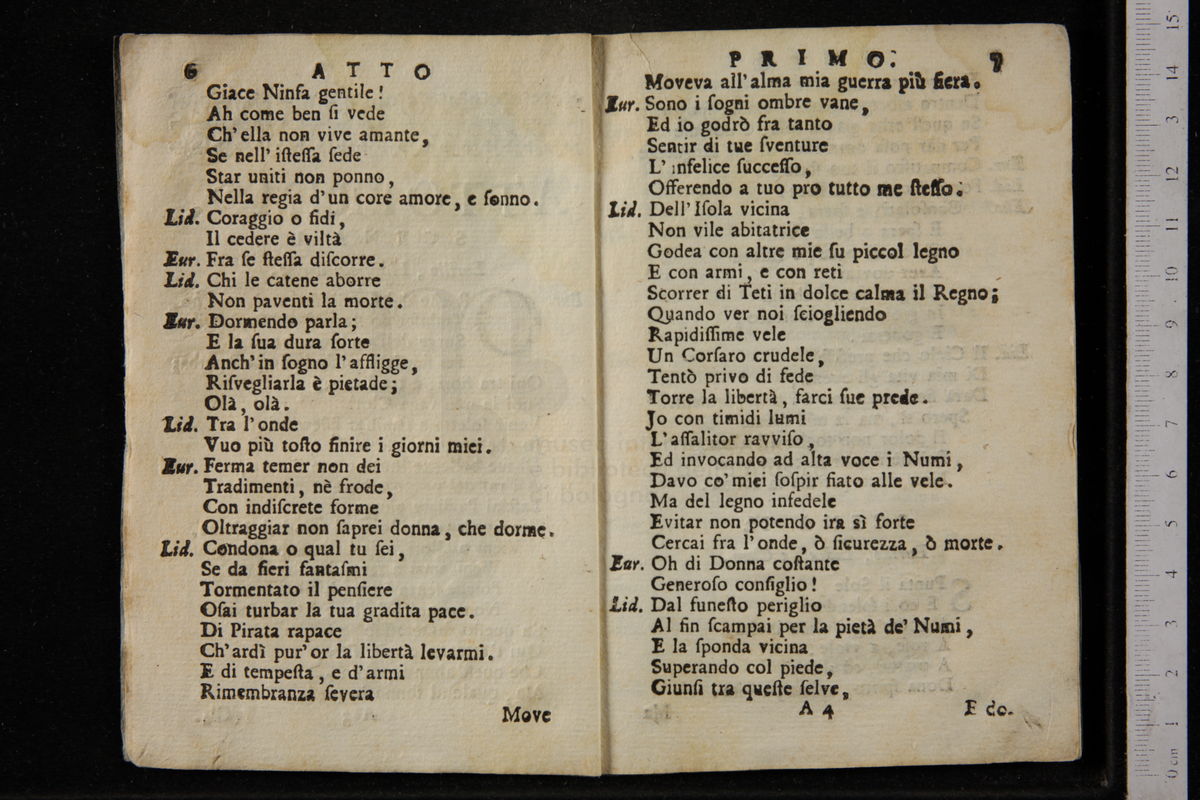 6 ATTO
Giace Ninfa gentile!
Ah come ben ſi vede
Ch'ella non vive amante,
Se nell' iſteſſa ſede
Star uniti non ponno,
Nella regia d'un core amore, e ſonno.
Lid. Coraggio o fidi,
Il cedere è viltà
Eur. Fra ſe ſteſſa diſcorre.
Lid. Chi le catene aborre
Non paventi la morte.
Eur. Dormendo parla;
E la ſua dura ſorte
Anch'in ſogno l'affligge,
Riſvegliarla è pietade;
Olà, olà.
Lid. Tra l'onde
Vuo più toſto finire i giorni miei.
Eur. Ferma temer non dei
Tradimenti, nè frode,
Con indiſcrete forme
Oltraggiar non ſaprei donna, che dorme.
Lid. Condona o qual tu ſei,
Se da fieri fantaſmi
Tormentato il penſiere
Oſai turbar la tua gradita pace.
Di Pirata rapace
Ch'ardì pur'or la libertà levarmi.
E di tempeſta, e d'armi
Rimembranza ſevera
Move
PRIMO. 7
Moveva all'alma mia guerra più fiera.
Eur. Sono i ſogni ombre vane,
Ed io godrò fra tanto
Sentir di tue ſventure
L' infelice ſucceſſo,
Offerendo a tuo pro tutto me ſteſſo.
Lid. Dell'Iſola vicina
Non vile abitatrice
Godea con altre mie ſu piccol legno
E con armi, e con reti
Scorrer di Teti in dolce calma il Regno;
Quando ver noi ſciogliendo
Rapidiſſime vele
Un Corſaro crudele,
Tentò privo di fede
Torre la libertà, farci ſue prede.
Jo con timidi lumi
L'aſſalitor ravviſo,
Ed invocando ad alta voce i Numi,
Davo co' miei ſoſpir fiato alle vele.
Ma del legno infedele
Evitar non potendo ira sì forte
Cercai fra l'onde, ò ſicurezza, ò morte.
Eur. Oh di Donna coſtante
Generoſo conſiglio!
Lid. Dal funeſto periglio
Al fin ſcampai per la pietà de' Numi,
E la ſponda vicina
Superando col piede,
Giunſi tra queſte ſelve,
A 4 E do.